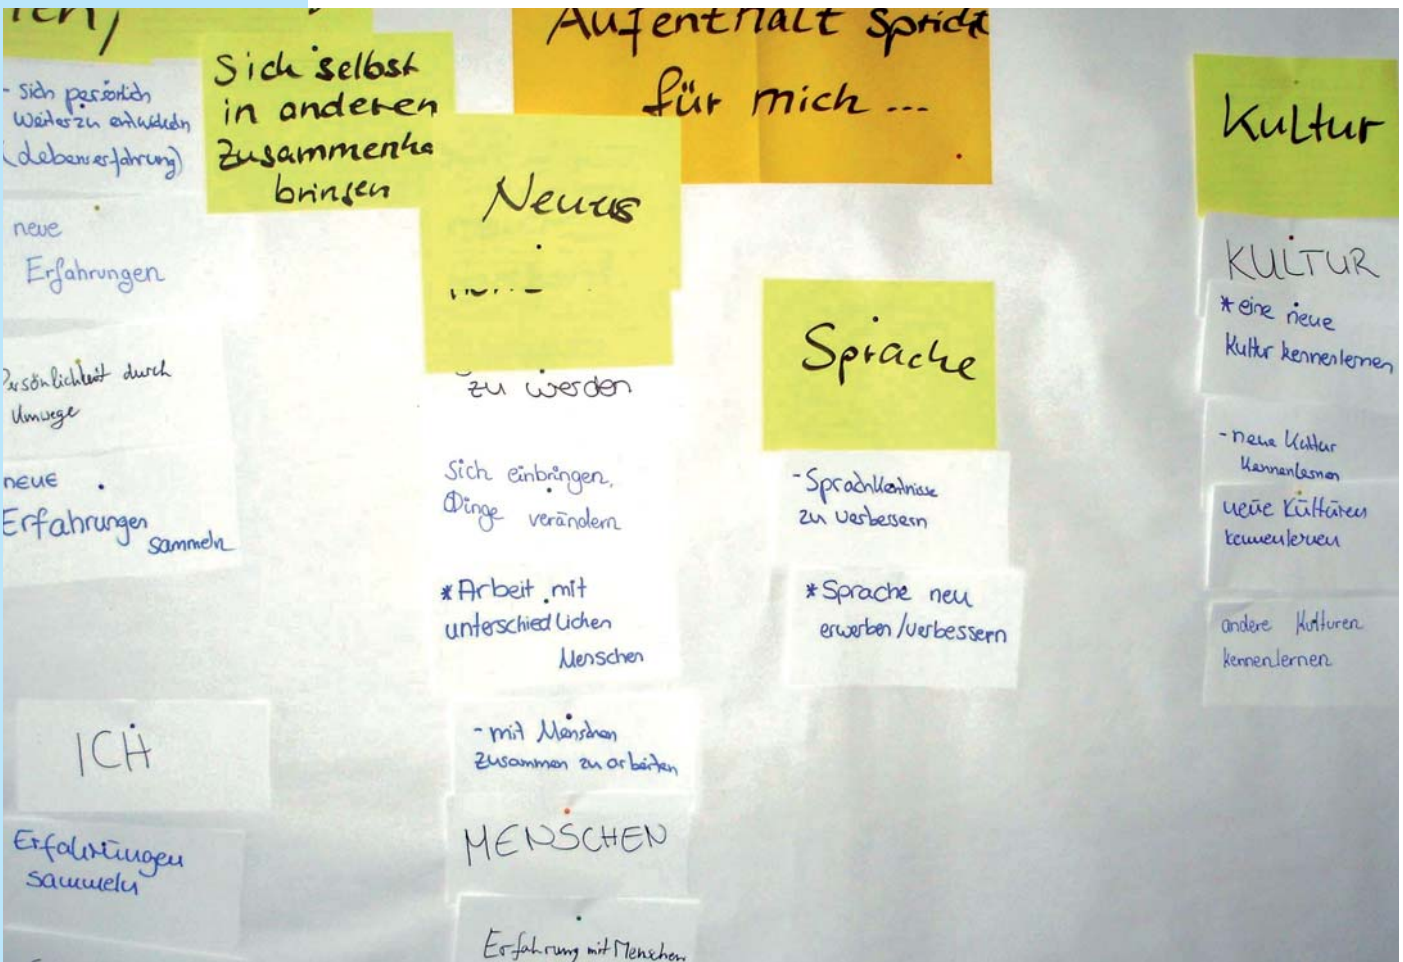 Aufenthalt spricht
für mich ...
- Sich persönlich
weiterzuentwickeln
(Lebenserfahrung)
neue
Erfahrungen
Persönlichkeit durch
Umwege
neue
Erfahrungen
sammeln
ICH
Erfahrungen
sammeln
Sich selbst
in anderen
Zusammenhä
bringen
Neues
zu werden
Sich einbringen,
Dinge verändern
*Arbeit mit
unterschiedlichen
Menschen
- mit Menschen
zusammen zu arbeiten
MENSCHEN
Erfahrung mit Menschen
Sprache
- Sprachkentnisse
zu verbessern
*Sprache neu
erwerben/verbessern
Kultur
KULTUR
* eine neue
Kultur kennenlernen
- neue Kultur
kennenlernen
neue Kulturen
kennenlernen
andere Kulturen
kennenlernen